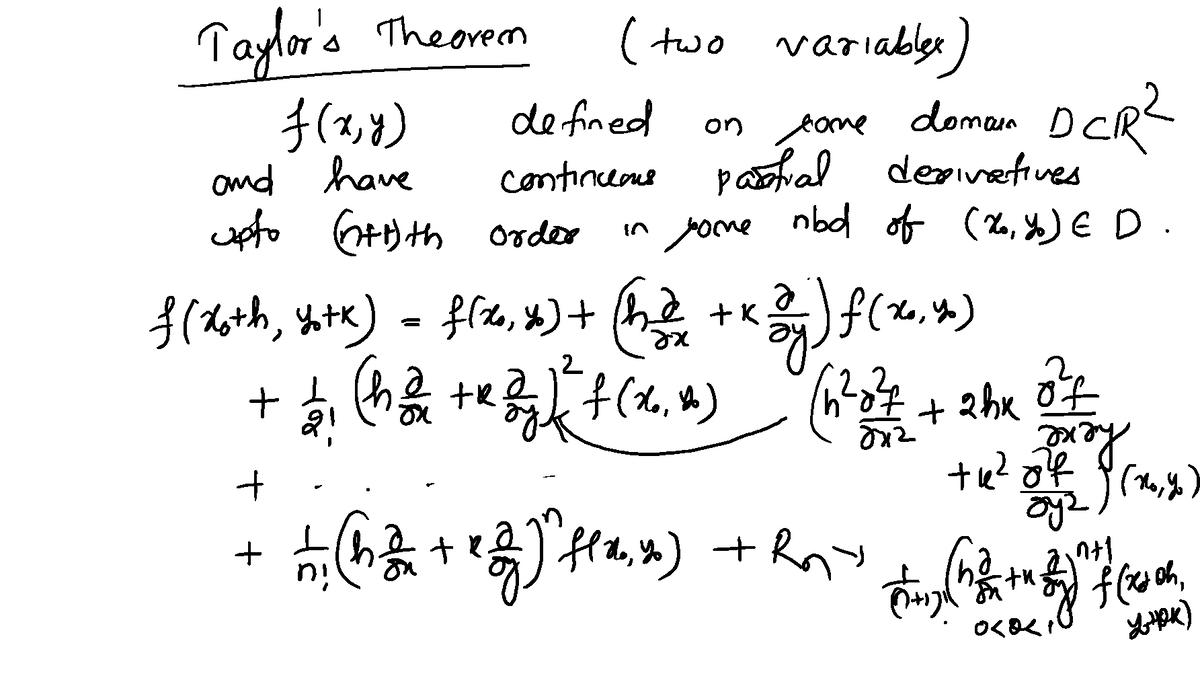 Taylor's Theorem (two variables)
f(x,y) defined on some domain D⊂ℝ²
and have continuous partial derivatives
upto (n+1)th order in some nbd of (x₀,y₀) ∈ D.
f(x₀+h, y₀+k) = f(x₀,y₀) + (h ∂/∂x + k ∂/∂y) f(x₀,y₀)
+ 1/2! (h ∂/∂x + k ∂/∂y)² f(x₀,y₀) (h² ∂²f/∂x² + 2hk ∂²f/∂x∂y
+ k² ∂²f/∂y²)(x₀,y₀)
+ . . . -
+ 1/n! (h ∂/∂x + k ∂/∂y)ⁿ f(x₀,y₀) + Rₙ →
1/(n+1)! (h ∂/∂x + k ∂/∂y)ⁿ⁺¹ f(x₀+θh,
0<θ<1 y₀+θk)